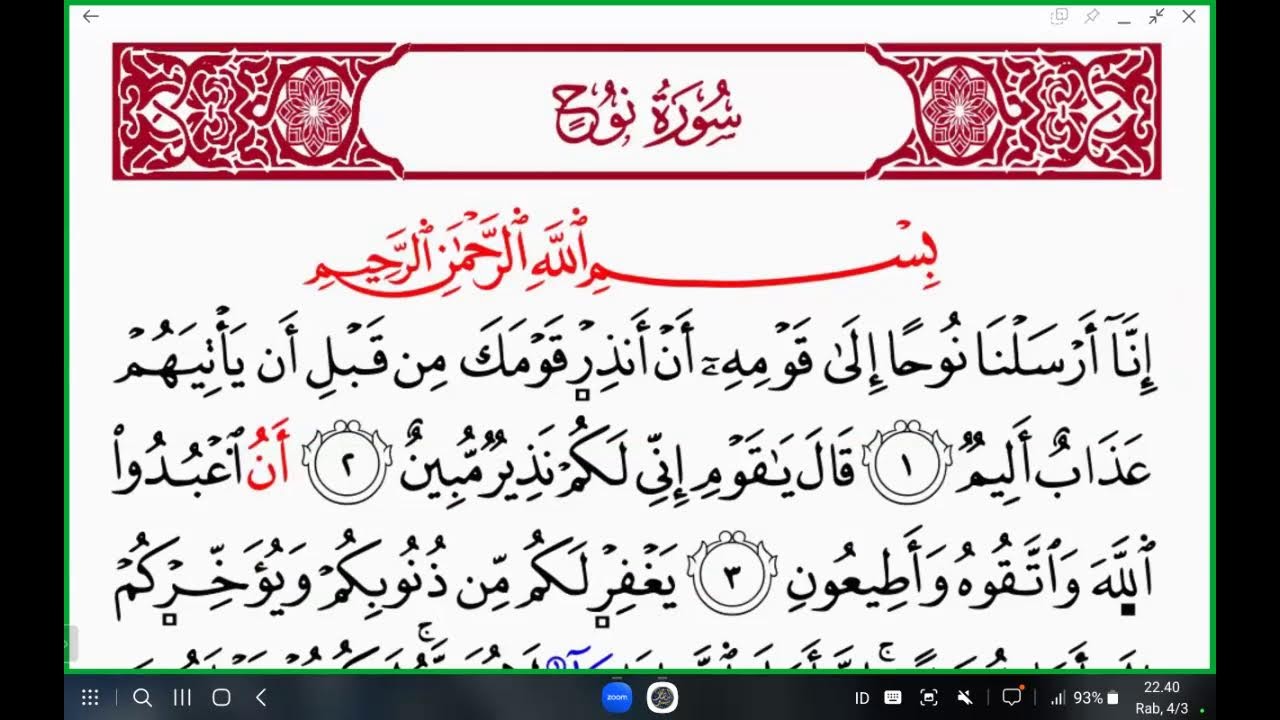 سُورَةُ نُوحٍ
بِسۡمِ ٱللَّهِ ٱلرَّحۡمَٰنِ ٱلرَّحِيمِ
إِنَّآ أَرۡسَلۡنَا نُوحًا إِلَىٰ قَوۡمِهِۦٓ أَنۡ أَنذِرۡ قَوۡمَكَ مِن قَبۡلِ أَن يَأۡتِيَهُمۡ
عَذَابٌ أَلِيمٞ ١ قَالَ يَٰقَوۡمِ إِنِّي لَكُمۡ نَذِيرٞ مُّبِينٌ ٢ أَنُ ٱعۡبُدُواْ
ٱللَّهَ وَٱتَّقُوهُ وَأَطِيعُونِ ٣ يَغۡفِرۡ لَكُم مِّن ذُنُوبِكُمۡ وَيُؤَخِّرۡكُمۡ
zoom ID 93% 22.40
Rab, 4/3